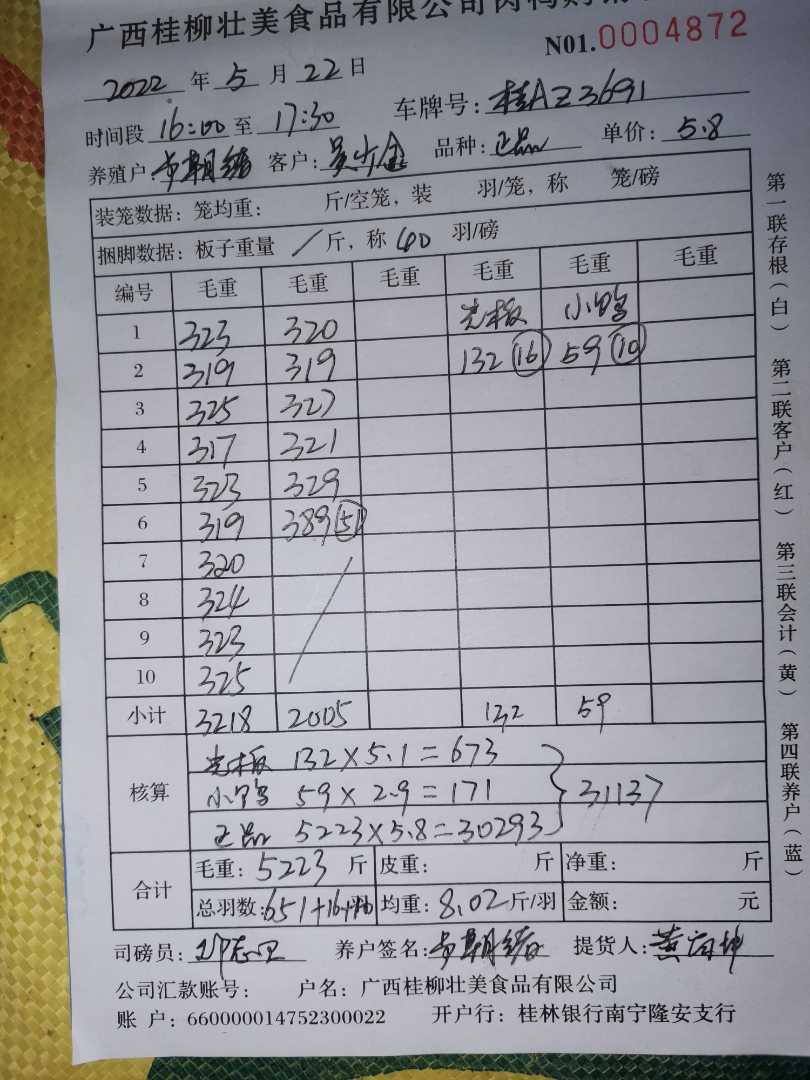 广西桂柳壮美食品有限公司肉鸭购销
N01.0004872
2022 年 5 月 22 日
时间段 16:00 至 17:30 车牌号: 桂AZ3691
养殖户: 客户: 品种: 正品 单价: 5.8
装笼数据: 笼均重: 斤/空笼, 装 羽/笼, 称 笼/磅
捆脚数据: 板子重量 / 斤, 称 40 羽/磅
编号 毛重 毛重 毛重 毛重 毛重 毛重
1 323 320 光板 小鸭
2 319 319 132 (16) 59 (10)
3 325 327
4 317 321
5 323 329
6 319 389 (51)
7 320
8 324
9 323
10 325
小计 3218 2005 132 59
核算 光板 132×5.1=673
小鸭 59×2.9=171 } 31137
正品 5223×5.8=30293
合计 毛重: 5223 斤 皮重: 斤 净重: 斤
总羽数: 651+16+10 均重: 8.02 斤/羽 金额: 元
司磅员: 养户签名: 提货人:
公司汇款账号: 户名: 广西桂柳壮美食品有限公司
账 户: 660000014752300022 开户行: 桂林银行南宁隆安支行
第一联存根(白) 第二联客户(红) 第三联会计(黄) 第四联养户(蓝)